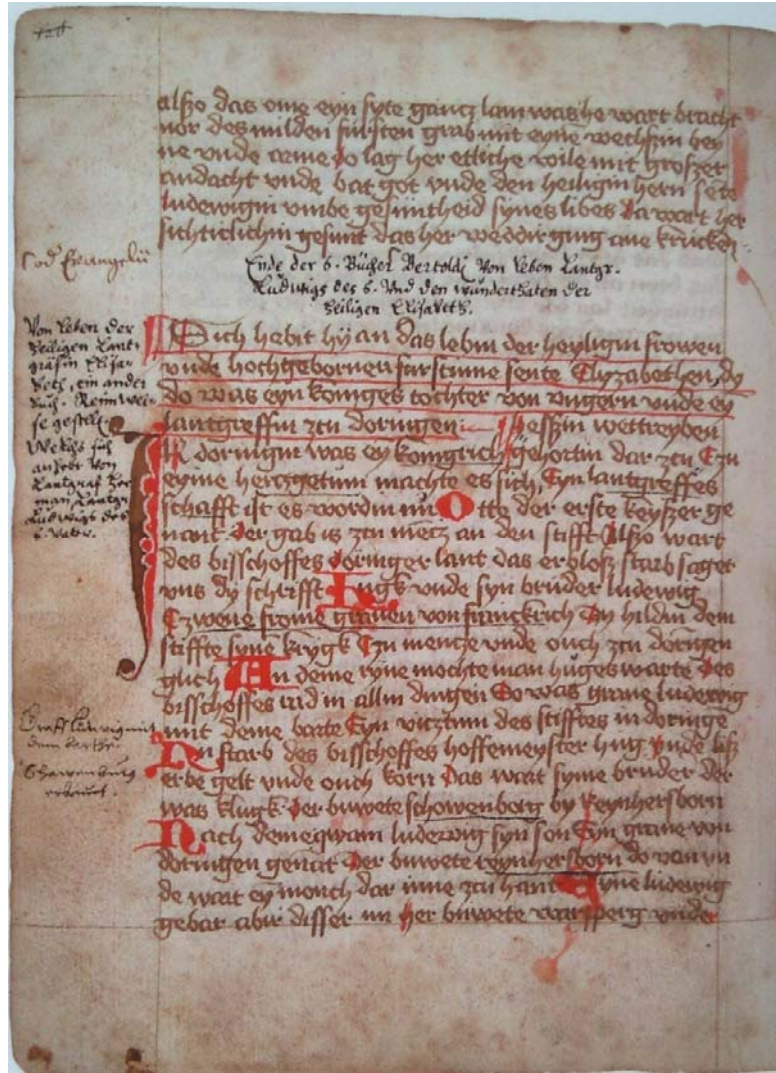 alszo das ome eyn syte gancz lam was he wart bracht
vor des milden fursten grab mit eyne wechszin bey
ne vnde arme do lag her etliche wile mit groszer
andacht vnde bat got vnde den heiligin hern sēte
ludewigin vmbe gesuntheid synes libes da wart her
sichticlichin gesunt das her weddir ging ane krucken
Cod Evangelii
Ende der 6. Bücher Bertoldi von leben Lantgr.
Ludwigs des 6. vnd den wunderthaten der
Heiligen Elisabeth.
Von leben der
Heiligen Lant-
gräfin Elisa-
beth, ein ander
buch. Reimwei-
se gestelt.
Welchs sich
anhebt von
Lantgraf Her-
man Lantgr.
Ludwigs des
6. Vater.
Sich hebit hy an das lebin der heyligin frowen
vnde hochgebornen furstinne sente Elyzabethen, dy
do was eyn koniges tochter von vngern vnde ey
lantgreffin zcu doringen desszin wettreyben
In doringin was ey konigrich gehortin dar zcu Czu
eyme herczgetum machte es sich, Eyn lantgreffes
schafft ist es wordin nu Otte der erste keyszer ge
nant der gab is zcu mencz an den stifft Alszo wart
des bisschoffes doringer lant das erblosz starb saget
vns dy schrifft Hugk vnde syn bruder ludewig
Czwene frome grauen von franckrich Dy hildin dem
stiffte syne krygk Czu mencze vnde ouch zcu doringen
glich An deme ryne mochte man huges warte Des
bisschoffes rad in allin dingen So was graue ludewig
mit deme barte Eyn vicztum des stifftes in doringē
Nu starb des bisschoffes hoffemeyster hug Vnde lisz
erbe gelt vnde ouch korn Das wart syme bruder der
was klugk Der buwete schowenborg by Reynhersborn
Nach deme qwam ludewig syn son Eyn graue von
doringen genāt Der buwete reynhersborn do von vn
de wart ey monch dar inne zcu hant Syne ludewig
gebar abir disser nu her buwete wartperg vnde
Graff Ludwig mit
dem barthe
Schawenburg
erbawet.